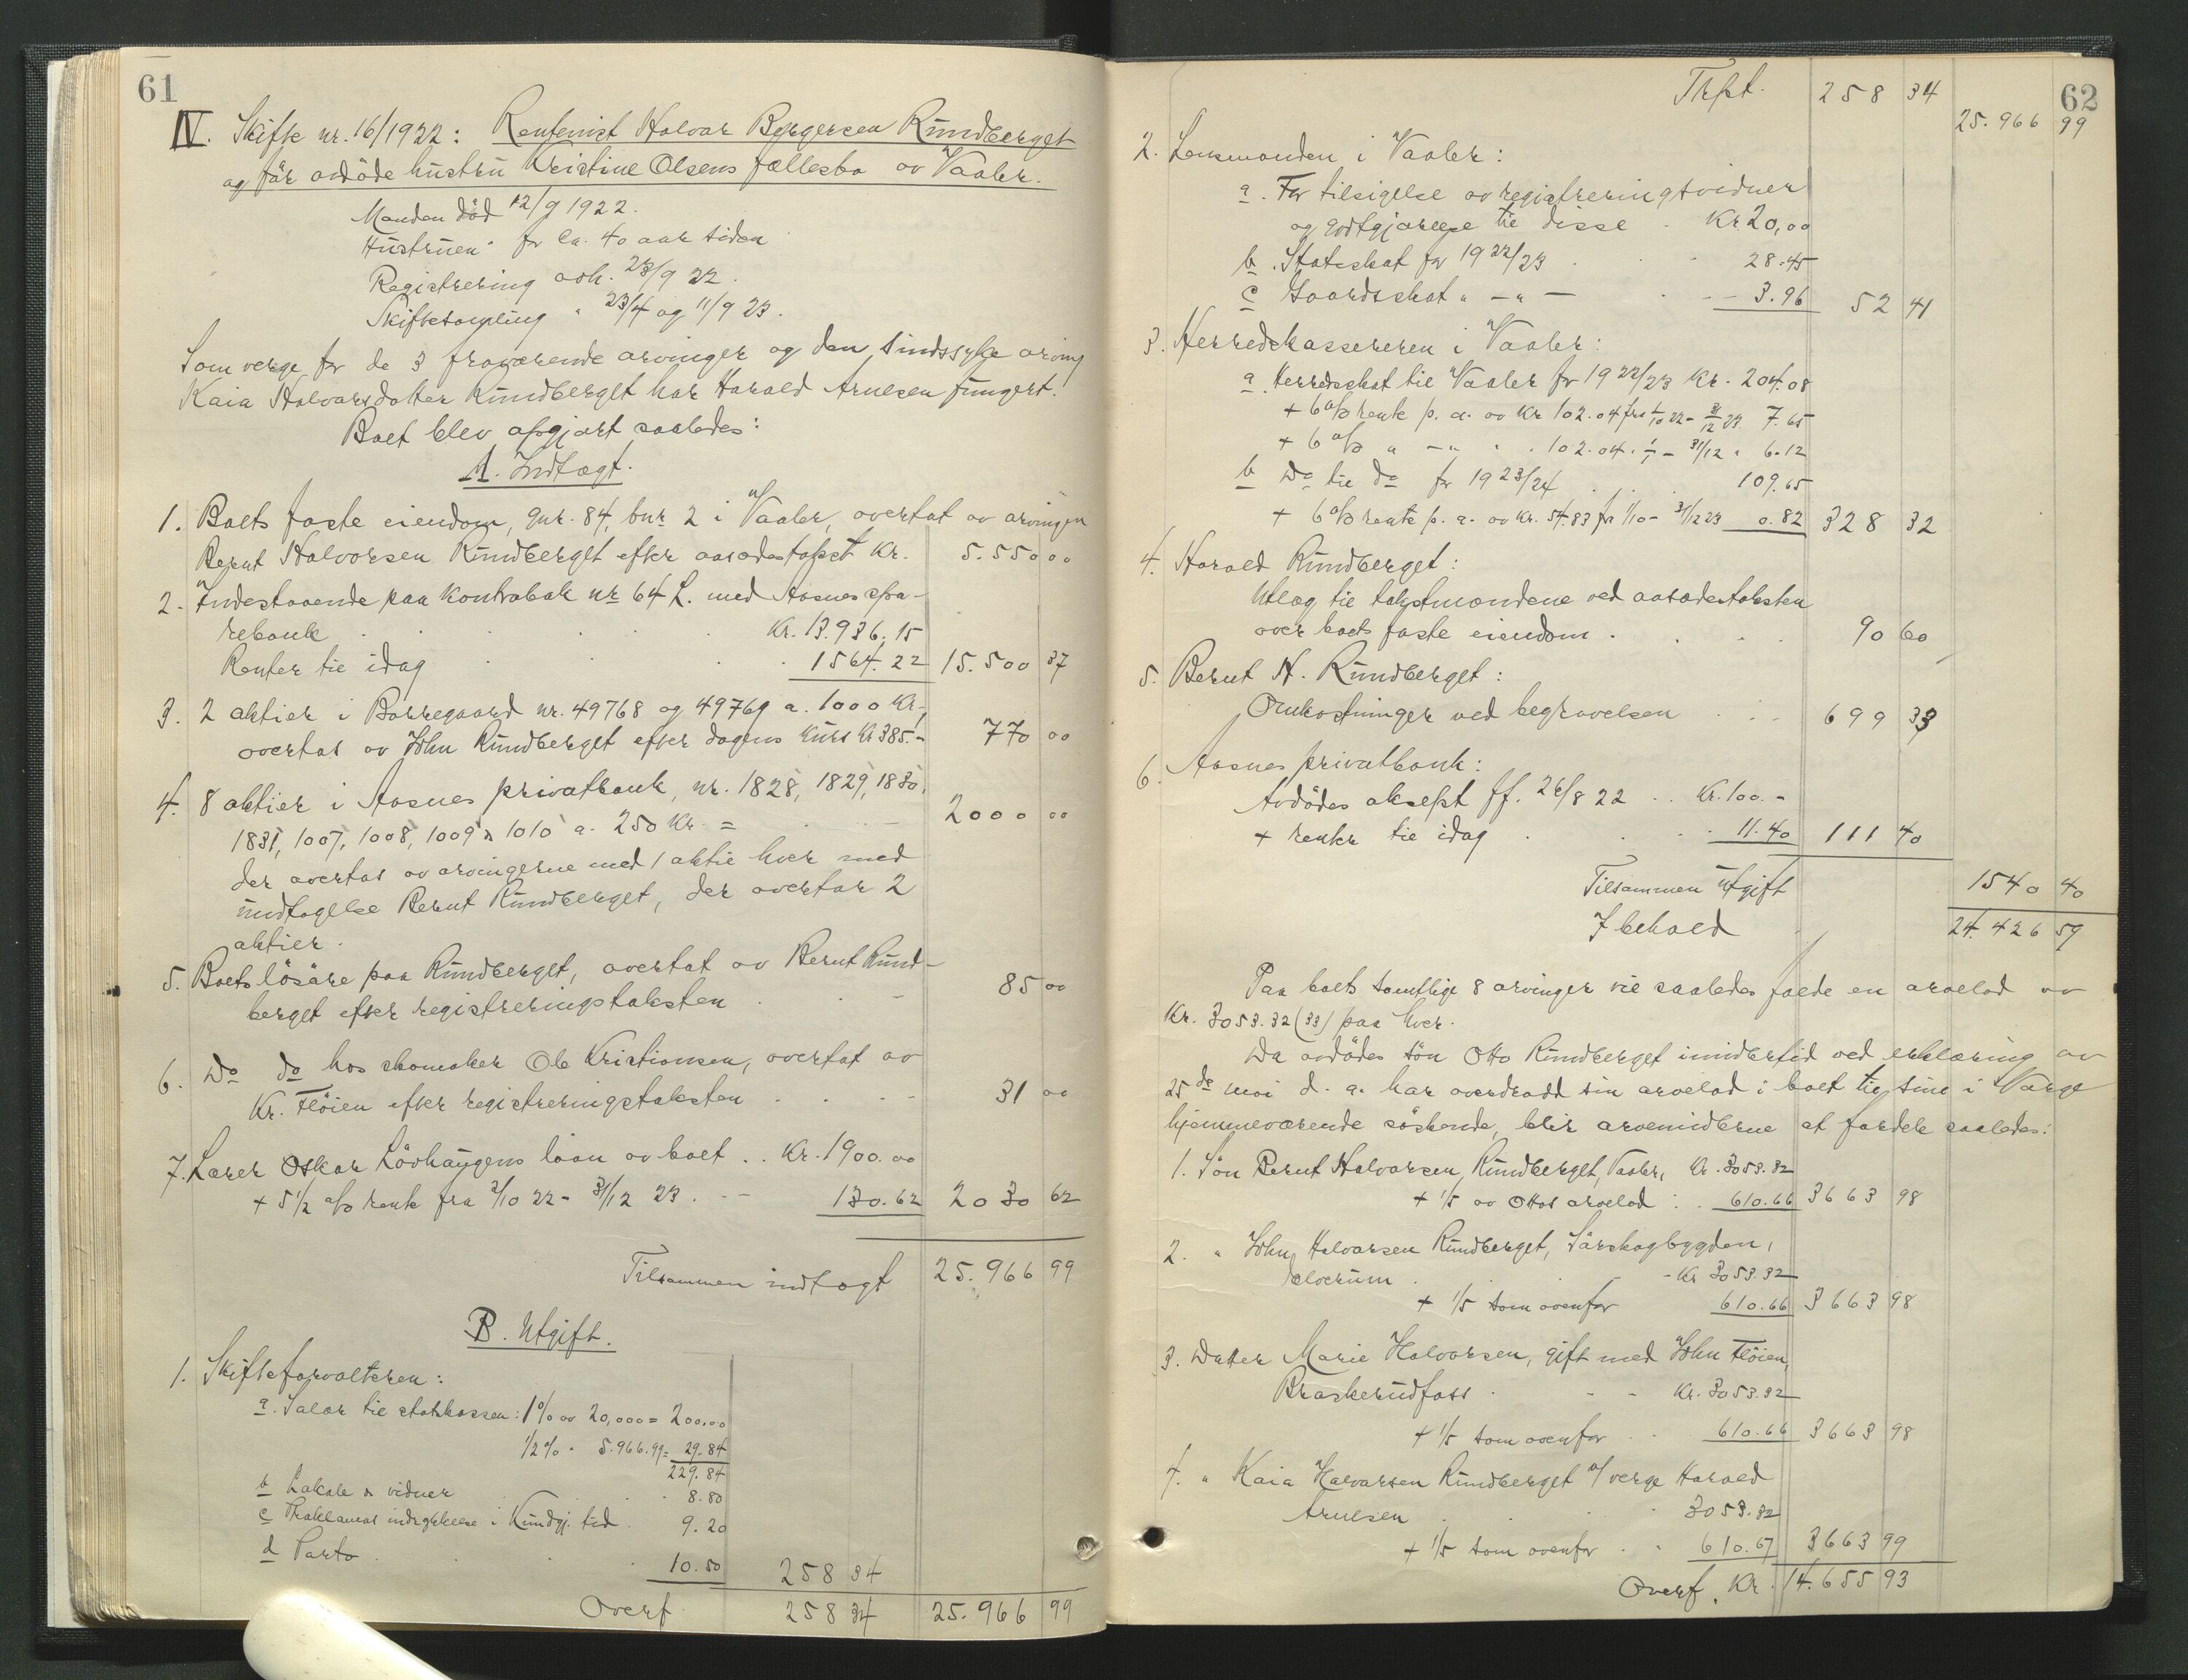 61
IV. Skifte nr. 16/1922: Rentenist Halvor Børgersen Rundberget
og før avdøde hustru Kristine Olsens fællesbo av Vaaler.
Manden død 12/9 1922.
Hustruen " for ca. 40 aar siden
Registrering avh. 23/9 22.
Skiftesamling " 23/4 og 11/9 23.
Som verge for de 3 fraværende arvinger og den sindssyke arving
Kaia Halvorsdatter Rundberget har Harald Arnesen fungert.
Boet blev opgjort saaledes:
A. Indtægt.
1. Boets faste eiendom, gnr. 84, bnr. 2 i Vaaler, overtat av arvingen
Bernt Halvorsen Rundberget efter aasædestakst Kr. 5.550 00
2. Indestaaende paa Kontrabok nr 64 L. med Aasnes spa-
rebank Kr. 13.936.15
Renter til idag 1564.22 15.500 37
3. 2 aktier i Borregaard nr. 49768 og 49769 a. 1000 Kr,
overtas av John Rundberget efter dagens kurs Kr 385.- 770 00
4. 8 aktier i Aasnes privatbank, nr. 1828, 1829, 1830,
1831, 1007, 1008, 1009 & 1010 a. 250 Kr. = 2000 00
der overtas av arvingerne med 1 aktie hver med
undtagelse Bernt Rundberget, der overtar 2
aktier.
5. Boets løsøre paa Rundberget, overtat av Bernt Rund-
berget efter registreringstaksten 85 00
6. Do do hos skomaker Ole Kristiansen, overtat av
Kr. Fløien efter registreringstaksten 31 00
7. Lærer Oskar Løvhaugens laan av boet .. Kr. 1900.00
+ 5 1/2 % rente fra 2/10 22 - 31/12 23. 130.62 2030 62
Tilsammen indtægt 25.966 99
B. Utgift.
1. Skifteforvalteren:
a. Salær til statskassen: 1% av 20,000 = 200.00
1/2 % " 5.966.99 = 29.84
229.84
b Lokale & vidner 8.80
c Proklamas indrykkelse i Kundgj. tid. 9.20
d Porto 10.50 258 34
Overf 258 34 25.966 99
62
Trspt. 258 34
25.966 99
2. Lensmanden i Vaaler:
a. For tilsigelse av registreringsvidner
og godtgjørelse til disse . Kr 20,00
b. Statsskat for 1922/23 28.45
c Gaardsskat " - " - 3.96 52 41
3. Herredskassereren i Vaaler:
a. Herredsskat til Vaaler for 1922/23 Kr. 204.08
+ 6 % rente p. a. av Kr 102.04 fra 1/10 22 - 31/12 23. 7.65
+ 6 % " - " " 102.04 " 1/1 - 31/12 " 6.12
b Do til do for 1923/24 109.65
+ 6 % rente p. a. av Kr. 54.83 fra 1/10 - 31/12 23 0.82 328 32
4. Harald Rundberget:
Utlæg til takstmændene ved aasædestaksten
over boets faste eiendom . 90 60
5. Bernt H. Rundberget:
Omkostninger ved begravelsen 699 33
6. Aasnes privatbank:
Avdødes aksept ff. 26/8 22 .. Kr. 100.-
+ renter til idag 11.40 111 40
Tilsammen utgift 1540 40
I behold 24.426 59
Paa boets samtlige 8 arvinger vil saaledes falde en arvelod av
Kr. 3053.32 (33) paa hver.
Da avdødes søn Otto Rundberget imidlertid ved erklæring av
25de mai d. a. har overdradd sin arvelod i boet til sine i Norge
hjemmeværende søskende, blir arvemidlerne at fordele saaledes:
1. Søn Bernt Halvorsen Rundberget, Vaaler, Kr. 3053.32
+ 1/5 av Ottos arvelod : . 610.66 3663 98
2. " John Halvorsen Rundberget, Sørskogbygden,
Elverum - Kr 3053.32
+ 1/5 som ovenfor 610.66 3663 98
3. Datter Marie Halvorsen, gift med John Fløien,
Braskerudfoss - - Kr. 3053.32
+ 1/5 som ovenfor 610.66 3663 98
4. " Kaia Halvorsen Rundberget v/ verge Harald
Arnesen 3053.32
+ 1/5 som ovenfor . . 610.67 3663 99
Overf. Kr. 14.655 93